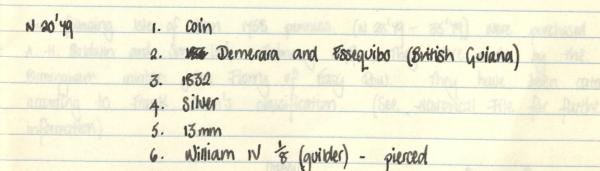 N 20'49 1. Coin
2. Demerara and Essequibo (British Guiana)
3. 1832
4. Silver
5. 13mm
6. William IV 1/8 (guilder) - pierced